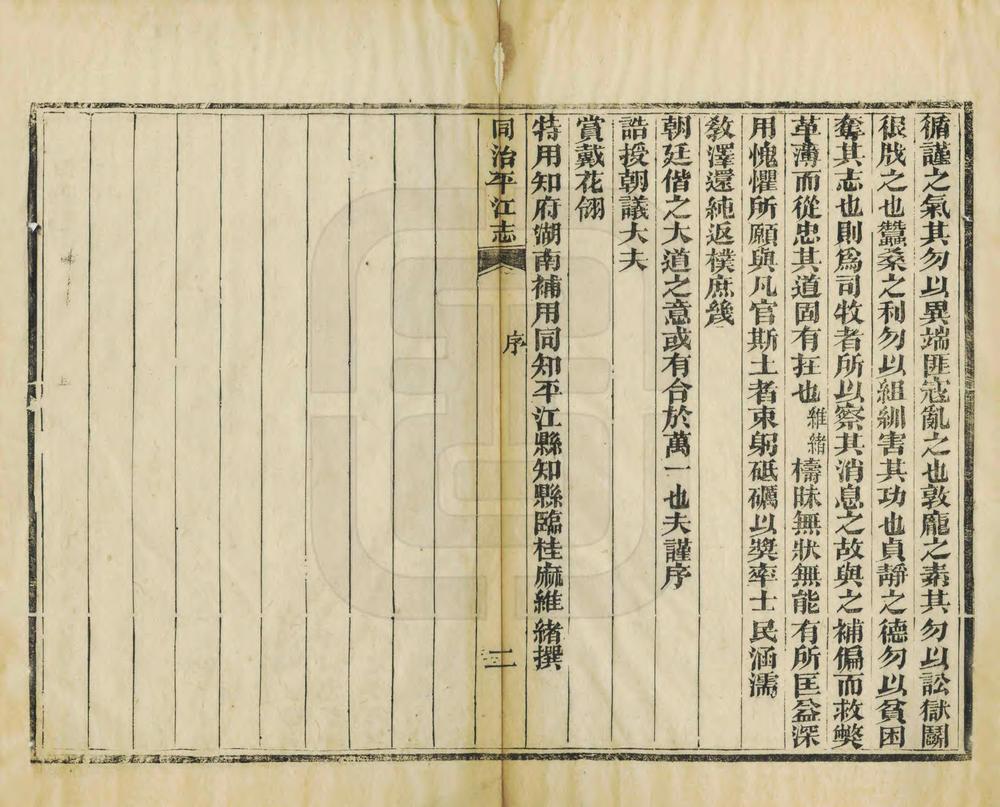 循謹之氣其勿以異端匪寇亂之也敦龐之素其勿以訟獄鬭
很戕之也蠶桑之利勿以組紃害其功也貞靜之德勿以貧困
奪其志也則爲司牧者所以察其消息之故與之補偏而救弊
革薄而從忠其道固有在也維緒檮昧無狀無能有所匡益深
用愧懼所願與凡官斯土者束躬砥礪以奬率士民涵濡
敎澤還純返樸庶幾
朝廷偕之大道之意或有合於萬一也夫謹序
誥授朝議大夫
賞戴花翎
特用知府湖南補用同知平江縣知縣臨桂麻維緒撰
同治平江志 序 二